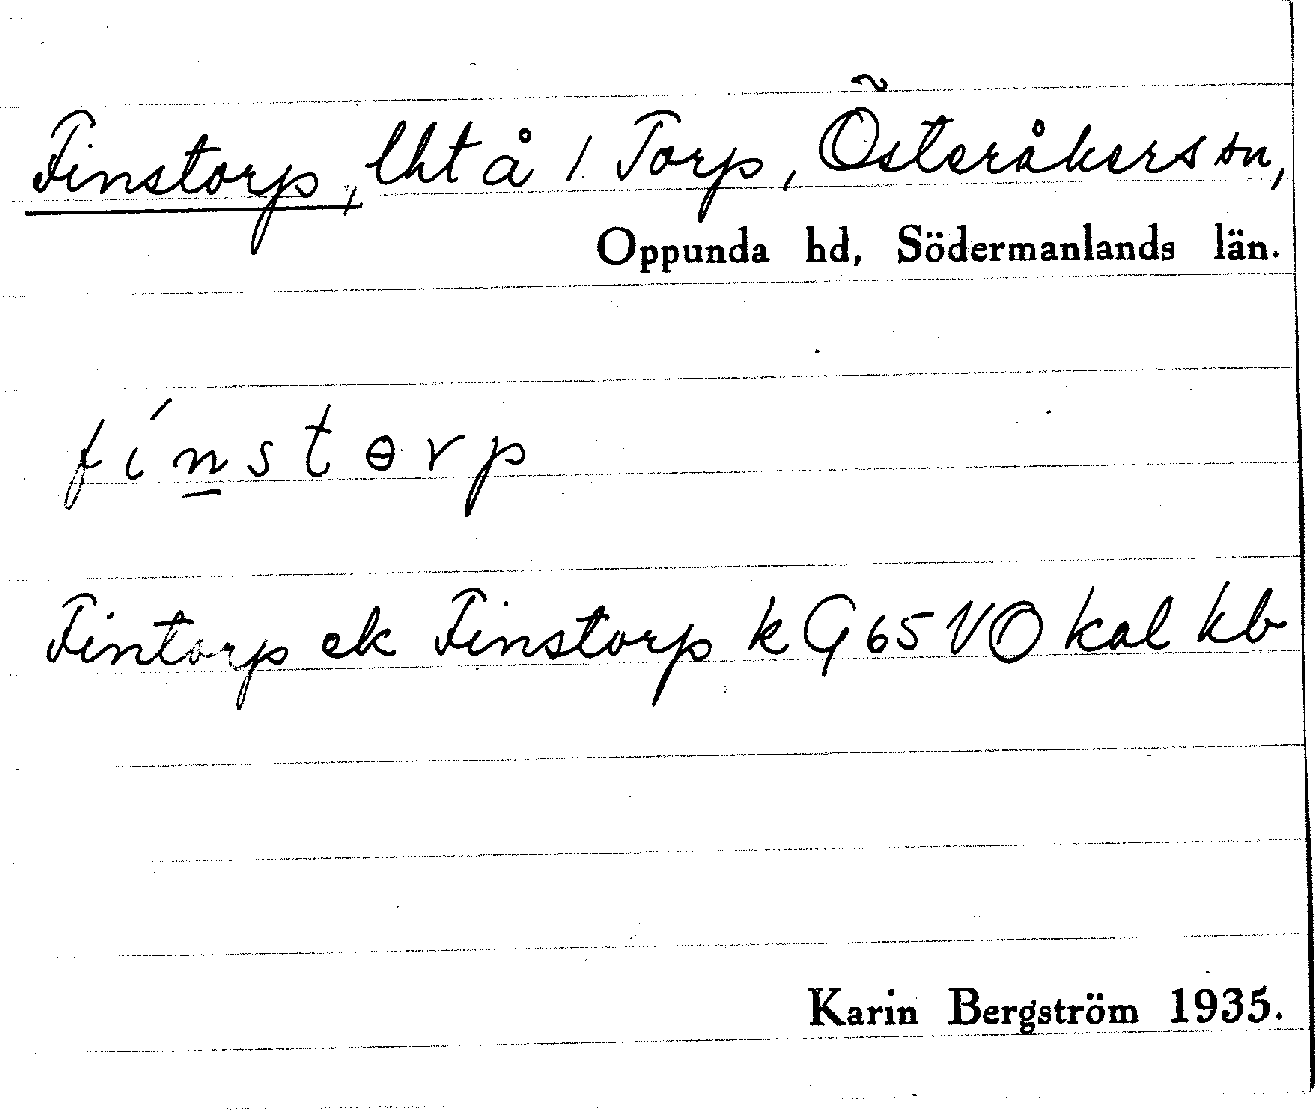 Finstorp, lht å 1 Torp, Österåkers sn,
Oppunda hd, Södermanlands län.
fín̲stɵrp
Fintorp ek Finstorp k G 65 VO kal kb
Karin Bergström 1935.